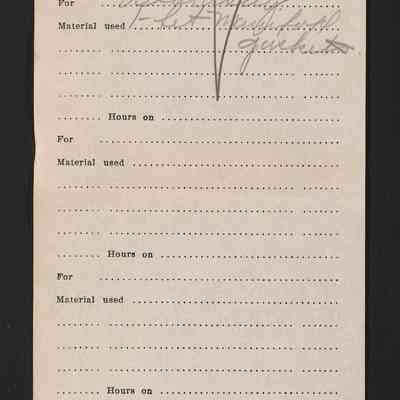 For ........................
Material used 1 set Manifold
gaskets
........ ........................ ........
........ ........................ ........
........ Hours on ........................
For ........................
Material used ........................
........ ........................ ........
........ ........................ ........
........ ........................ ........
........ Hours on ........................
For ........................
Material used ........................
........ ........................ ........
........ ........................ ........
........ ........................ ........
........ Hours on ........................